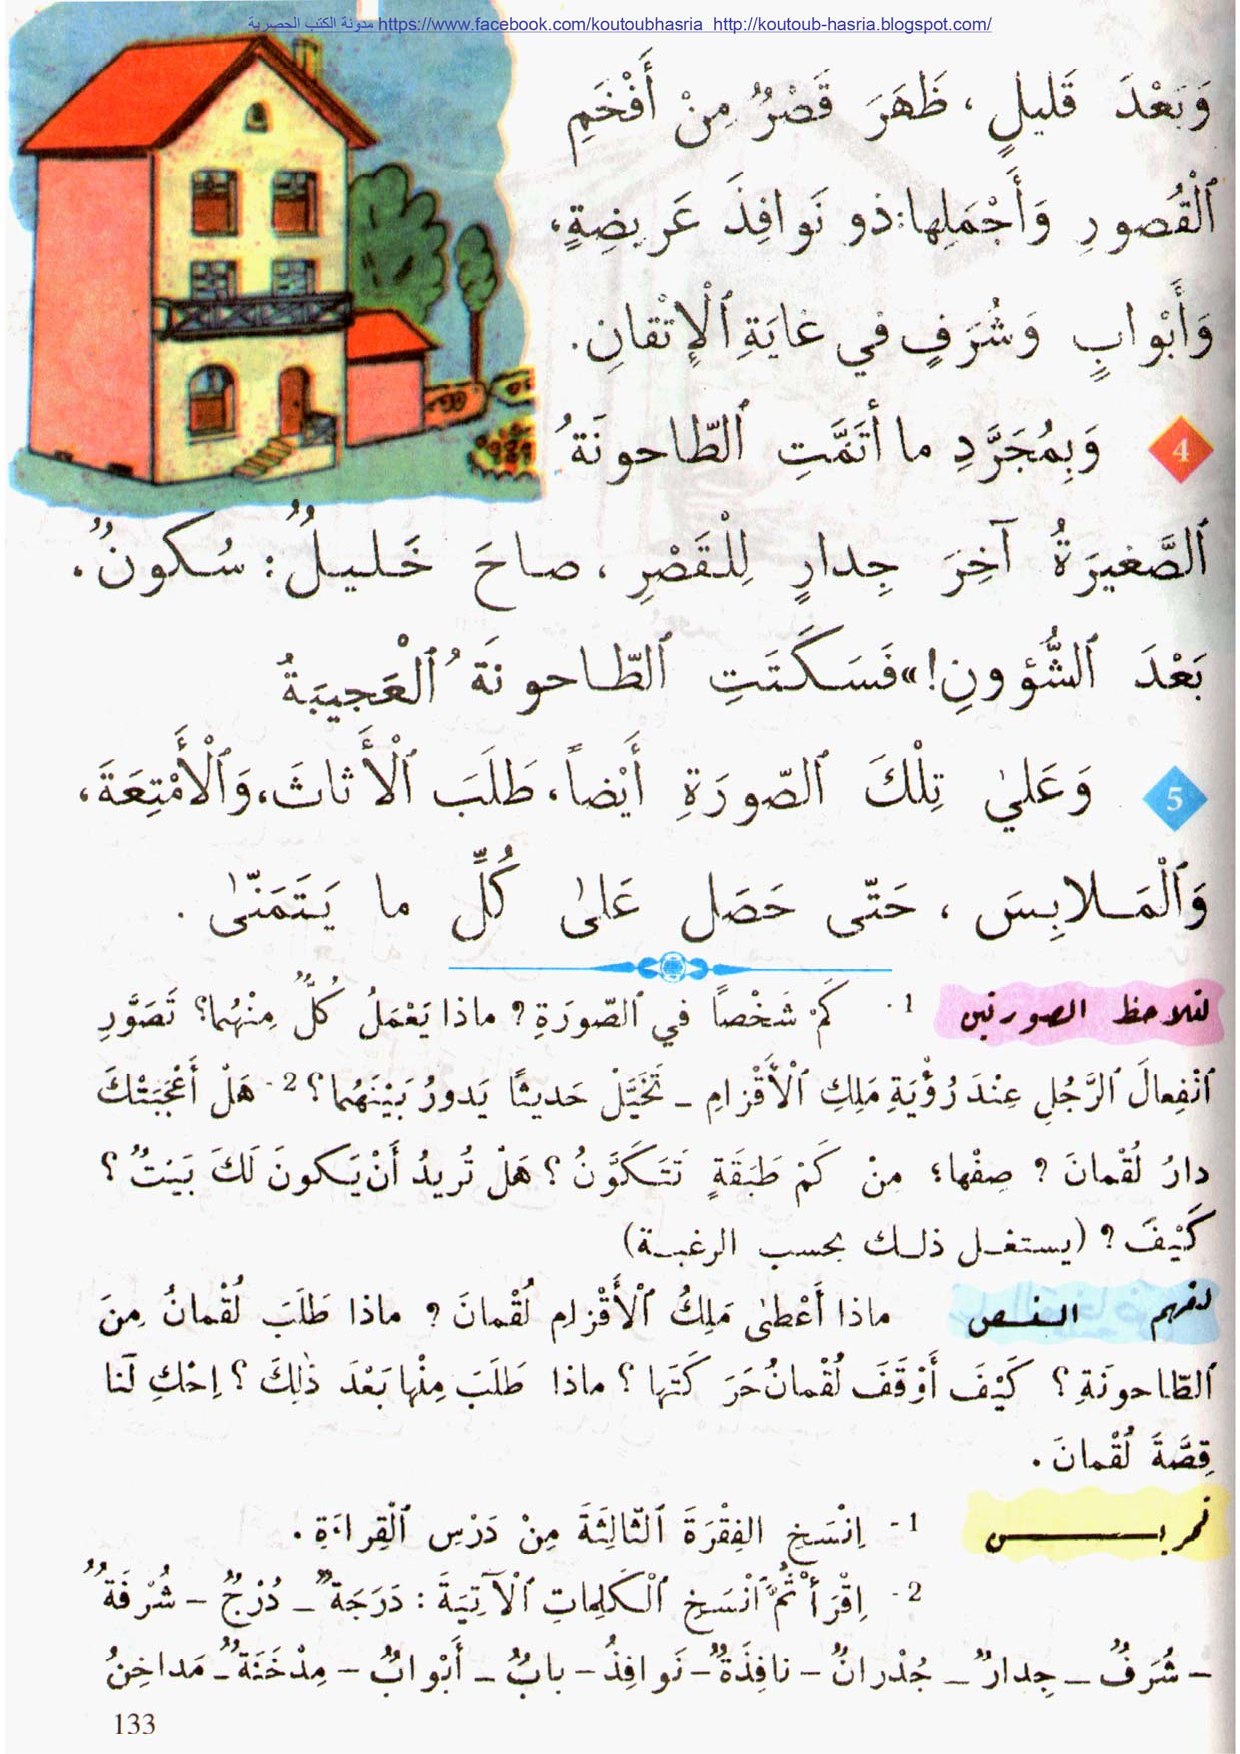 مدونة الكتب الحصرية https://www.facebook.com/koutoubhasria http://koutoub-hasria.blogspot.com/
وَبَعْدَ قَليلٍ، ظَهَرَ قَصْرٌ مِنْ أَفْخَمِ
ٱلْقُصورِ وَأَجْمَلِها: ذو نَوافِذَ عَريضةٍ،
وَأَبْوابٍ وَشُرَفٍ في غايَةِ ٱلْإِتْقانِ.
4 وَبِمُجَرَّدِ ما أَتَمَّتِ ٱلطّاحونَةُ
ٱلصَّغيرَةُ آخِرَ جِدارٍ لِلْقَصْرِ، صاحَ خَليلٌ: سُكونٌ،
بَعْدَ ٱلشُّؤونِ!» فَسَكَتَتِ ٱلطّاحونَةُ ٱلْعَجيبَةُ
5 وَعَلىٰ تِلْكَ ٱلصّورَةِ أَيْضاً، طَلَبَ ٱلْأَثاثَ، وَٱلْأَمْتِعَةَ،
وَٱلْمَلابِسَ، حَتّى حَصَل عَلىٰ كُلِّ ما يَتَمَنّىٰ.
لنلاحظ الصورتين 1- كَمْ شَخْصاً في ٱلصّورَةِ؟ ماذا يَعْمَلُ كُلٌّ مِنْهُما؟ تَصَوَّرِ
ٱنْفِعالَ ٱلرَّجُلِ عِنْدَ رُؤْيَةِ مَلِكِ ٱلْأَقْزامِ - تَخَيَّلْ حَديثًا يَدورُ بَيْنَهُما؟ 2- هَلْ أَعْجَبَتْكَ
دارُ لُقْمانَ؟ صِفْها؛ مِنْ كَمْ طَبَقَةٍ تَتَكَوَّنُ؟ هَلْ تُريدُ أَنْ يَكونَ لَكَ بَيْتٌ؟
كَيْفَ؟ (يستغل ذلك بحسب الرغبة)
لنفهم النص ماذا أَعْطىٰ مَلِكُ ٱلْأَقْزامِ لُقْمانَ؟ ماذا طَلَبَ لُقْمانُ مِنَ
ٱلطّاحونَةِ؟ كَيْفَ أَوْقَفَ لُقْمانُ حَرَكَتَها؟ ماذا طَلَبَ مِنْها بَعْدَ ذٰلِكَ؟ اِحْكِ لَنا
قِصَّةَ لُقْمانَ.
تمرين 1- اِنْسَخِ الفِقْرَةَ ٱلثّالِثَةَ مِنْ دَرْسِ ٱلْقِراءَةِ.
2- اِقْرَأْ ثُمَّ ٱنْسَخِ ٱلْكَلِماتِ ٱلْآتِيَةَ: دَرَجَةٌ - دُرْجٌ - شُرْفَةٌ
- شُرَفٌ - جِدارٌ - جُدْرانٌ - نافِذَةٌ - نَوافِذُ - بابٌ - أَبْوابٌ - مِدْخَنَةٌ - مَداخِنُ
133